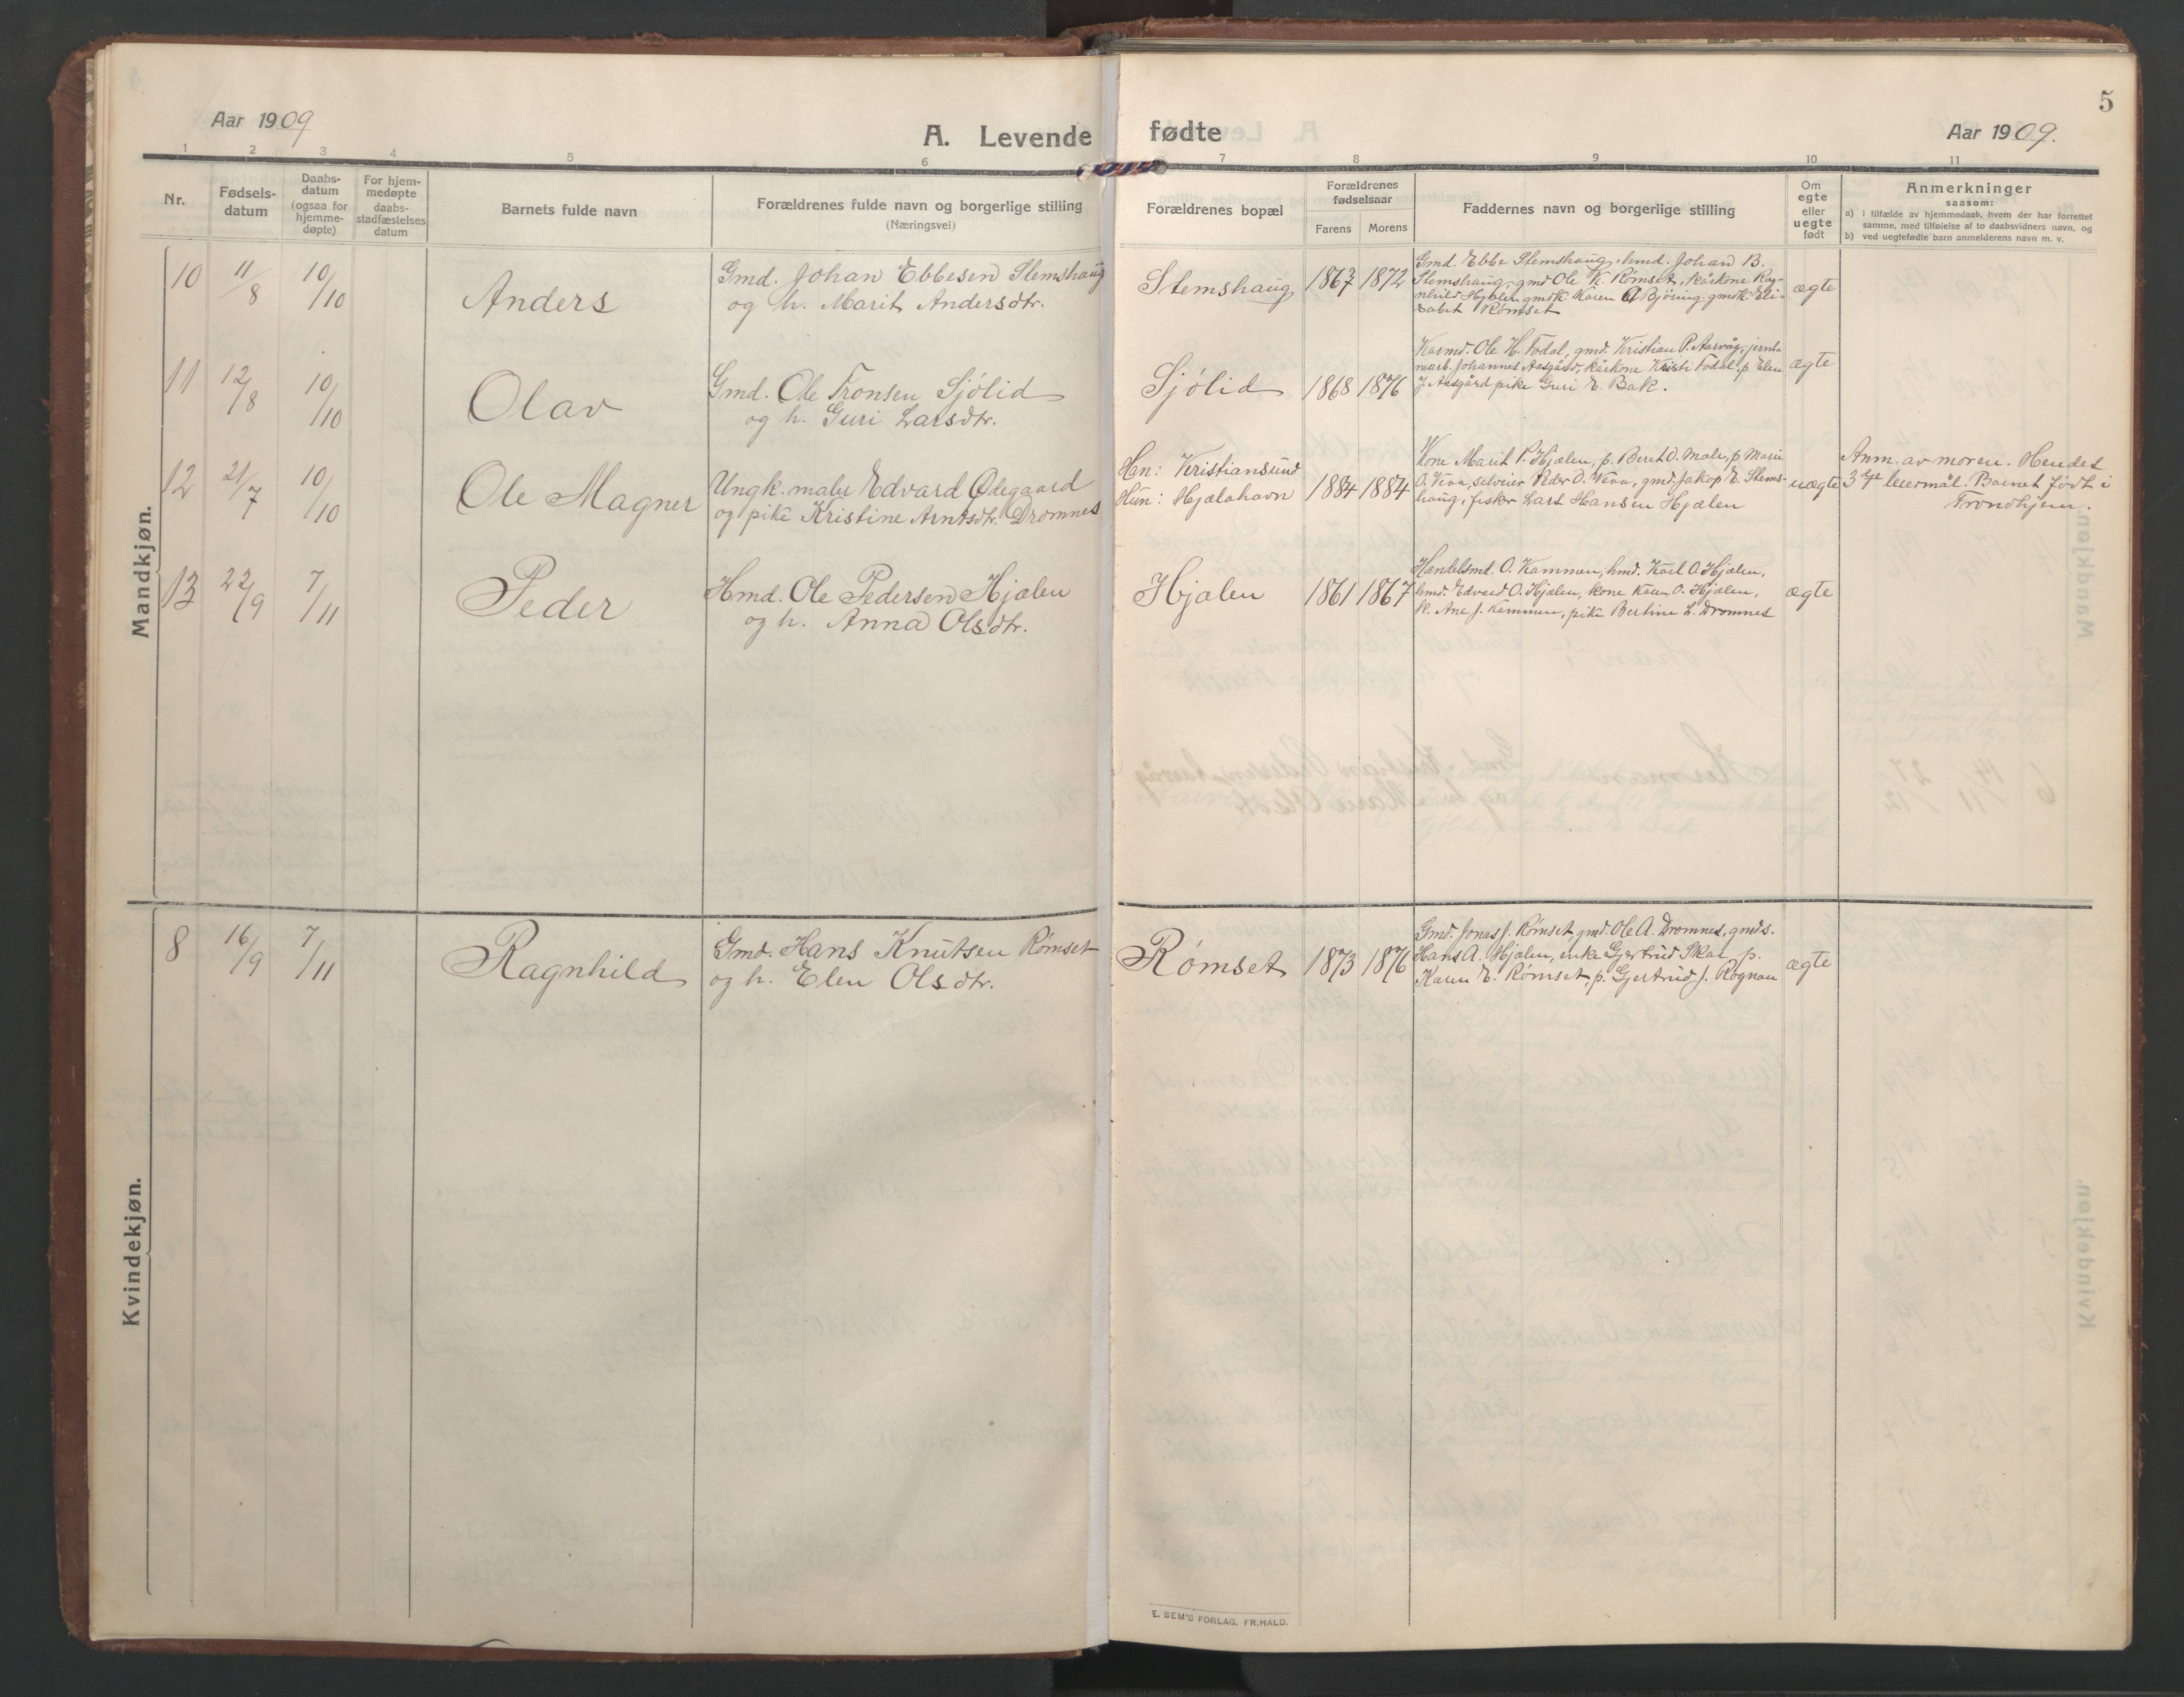 5
Aar 1909
A. Levende fødte
Aar 1909.
1 2 3 4 5 6 7 8 9 10 11
Nr.
Fødsels-
datum
Daabs-
datum
(ogsaa for
hjemme-
døpte)
For hjem-
medøpte
daabs-
stadfæstelses
datum
Barnets fulde navn
Forældrenes fulde navn og borgerlige stilling
(Næringsvei)
Forældrenes bopæl
Forældrenes
fødselsaar
Farens Morens
Faddernes navn og borgerlige stilling
Om
egte
eller
uegte
født
Anmerkninger
saasom:
a) i tilfælde av hjemmedaab, hvem der har forrettet
samme, med tilføielse af to daabsvidners navn, og
b) ved uegtefødte barn anmelderens navn m. v.
Mandkjøn.
10 11/8 10/10
Anders
Gmd. Johan Ebbesen Stemshaug
og h. Marit Andersdtr.
Stemshaug
1863 1872
Gmd. Ebbe Stemshaug, hmd. Johan B.
Stemshaug, gmd Ole K. Rømset, kårkone Rag-
nhild Hjælen gmdk. Karen A Björing. gmdk. Eli-
sabet Rømset
ægte
11 12/8 10/10
Olav
Gmd. Ole Tronsen Sjölid
og h. Guri Larsdtr.
Sjölid
1868 1876
Karmd. Ole H. Todal, gmd. Kristian P. Aarvåg,
Johannes Aasgård, kårkone Kristi Todal, p. Elen
J. Aasgård pike Guri E. Bak.
ægte
12 21/7 10/10
Ole Magner
Ungk. maler Edvard Ødegaard
og pike Kristine Arntsdtr. Dromnes
Han: Kristiansund
Hun: Hjælahavn
1884 1884
Kone Marit P. Hjælen, p. Beret O. Male, p Marie
O. selveier Peder O. gmd. Jakop E. Stems-
haug, fisker Lars Hansen Hjælen
uægte
Anm. av moren. Hendes
3dje leiermål. Barnet født i
Trondhjem.
13 22/9 7/11
Peder
Hmd. Ole Pedersen Hjælen
og h. Anna Olsdtr.
Hjælen
1861 1867
Handelsmd. O. Kammen, hmd. Karl O. Hjælen,
hmd. Edvard O. Hjælen, kone Karen O. Hjælen,
k. Ane J. Kammen, pike Bertine L. Dromnes
ægte
Kvindekjøn.
8 16/9 7/11
Ragnhild
Gmd. Hans Knutsen Rømset
og h. Elen Olsdtr.
Rømset
1873 1876
Gmd. Jonas J. Rømset, gmd. Ole A. Dromnes, gmds.
Hans A. Hjælen, enke Gjertrud Skar, p.
Karen E. Rømset, p. Gjertrud J. Rognan
ægte
E. SEM'S FORLAG, FR.HALD.